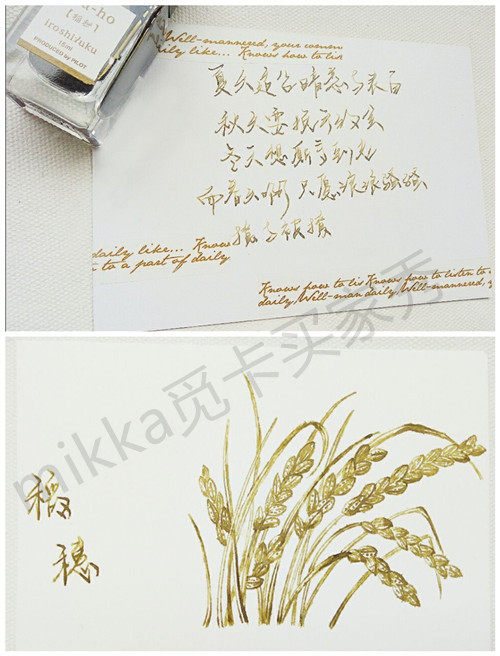 -ho
[稲穂]
iroshizuku
15ml
PRODUCED by PILOT
Well-mannered, your comm
daily like... Knows how to lis
夏天适合暗恋与表白
秋天要抵死
冬天想厮守到老
而春天啊 只愿浪浪骚骚
撩与被撩
daily like... Know
n to a part of daily
Knows how to lis Knows how to listen to
daily, Well-man daily, Well-mannered, y
稻
穗
mikka觅卡买家秀